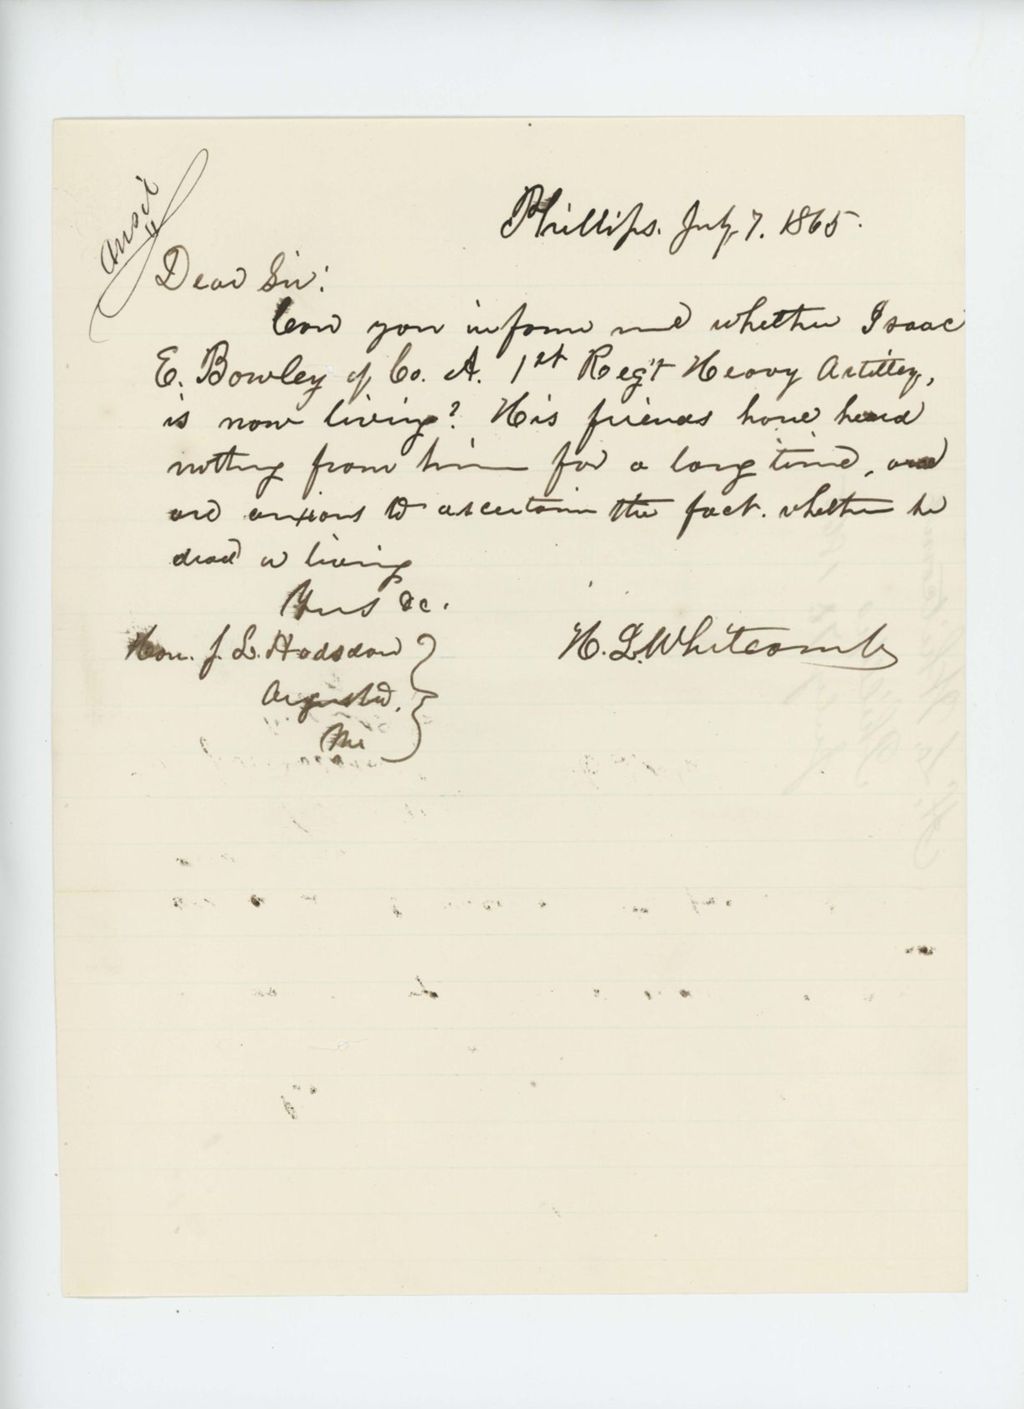 ansd
Phillips. July 7. 1865.
Dear Sir:
Can you inform me whether Isaac
E. Bowley of Co. A. 1st Reg't Heavy Artillery,
is now living? His friends have heard
nothing from him for a long time, and
are anxious to ascertain the fact. whether he
dead or living
Yours &c.
Hon. J. L. Hodsdon
Augusta,
Me
H. L. Whitcomb